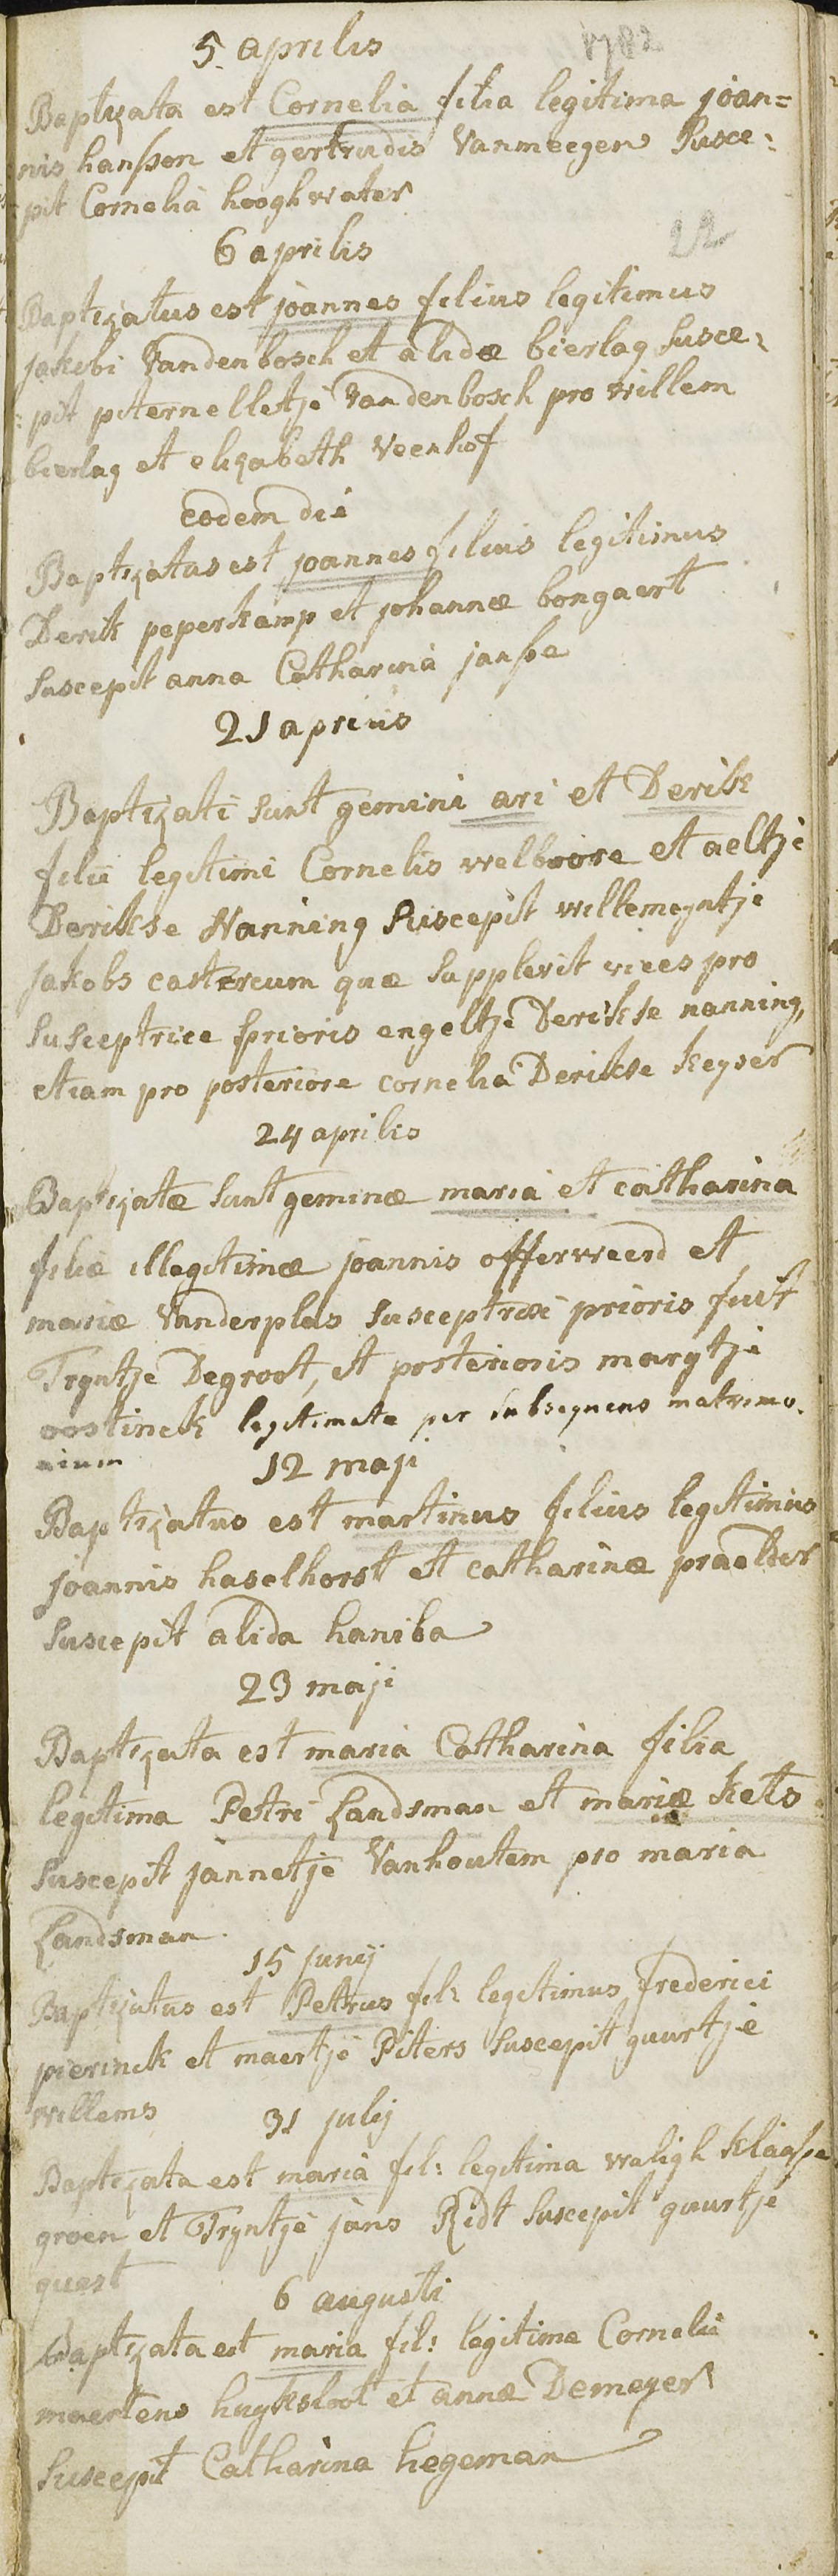 5 aprilis 1782
Baptizata est Cornelia filia legitima joan=
nis hanssen et gertrudis Vanmeegen Susce:
pit Cornelia hooghwater
6 aprilis 22
Baptizatus est joannes filius legitimus
jakobi Vandenbosch et alidæ bierlag Susce:
:pit piternelletje Vandenbosch pro willem
bierlag et elizabeth Veenhof
eodem die
Baptizatus est joannes filius legitimus
Derik peperkamp et johannæ bongaert
Suscepit anna Catharina janse
21 aprilis
Baptizati Sunt gemini ari et Derik
filii legitimi Cornelis welboore et aeltje
Derikse Nanning Suscepit willemeyntje
jakobs castereum quæ Supplevit vices pro
Susceptrice prioris engeltje Derikse nanning,
etiam pro posteriore cornelia Derikse Keyser
24 aprilis
Baptizatæ Sunt geminæ maria et catharina
filiæ illegitimæ joannis offerweerd et
mariæ Vanderplas Susceptrix prioris fuit
Tryntje Degroot, et posterioris margtje
oostinck legitimatæ per subsequens matrimo.
nium 12 maji
Baptizatus est martinus filius legitimus
joannis haselhorst et catharinæ praelder
Suscepit alida haniba
23 maji
Baptizata est maria Catharina filia
legitima Petri Landsman et mariæ Kets
Suscepit jannetje Vanhoutem pro maria
Landsman.
15 junij
Baptizatus est Petrus fil: legitimus frederici
pierinck et maertje Piters Suscepit guurtje
willems 31 julij
Baptizata est maria fil: legitima waligh Klaasse
groen et Tryntje jans Ridt Suscepit guurtje
quast
6 augusti
Baptizata est maria fil: legitima Cornelii
maertens huyksloot et annæ Demeyer
Suscepit Catharina hegeman